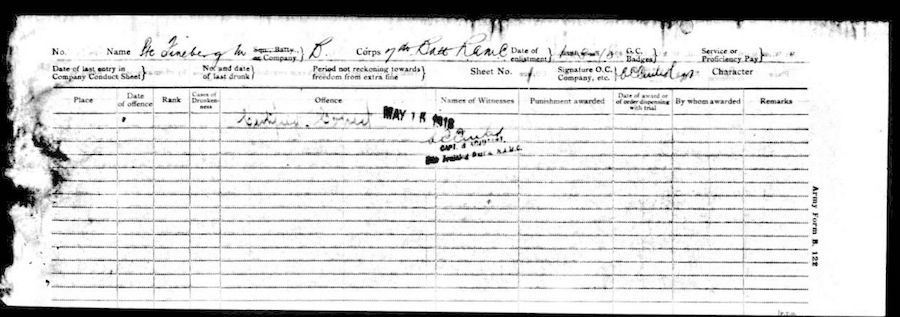 No. Name Pte Fineberg M Sqn., Batty. or Company B. Corps 7th Batt RAMC Date of enlistment G.C. Badges Service or Proficiency Pay
Date of last entry in Company Conduct Sheet No. and date of last drunk Period not reckoning towards freedom from extra fine Sheet No. Signature O.C. Company, etc. Character
Place Date of offence Rank Cases of Drunkenness Offence Names of Witnesses Punishment awarded Date of award or of order dispensing with trial By whom awarded Remarks
Certified Correct MAY 15 1918
CAPT. & ADJUTANT,
R.A.M.C.
Army Form B. 122